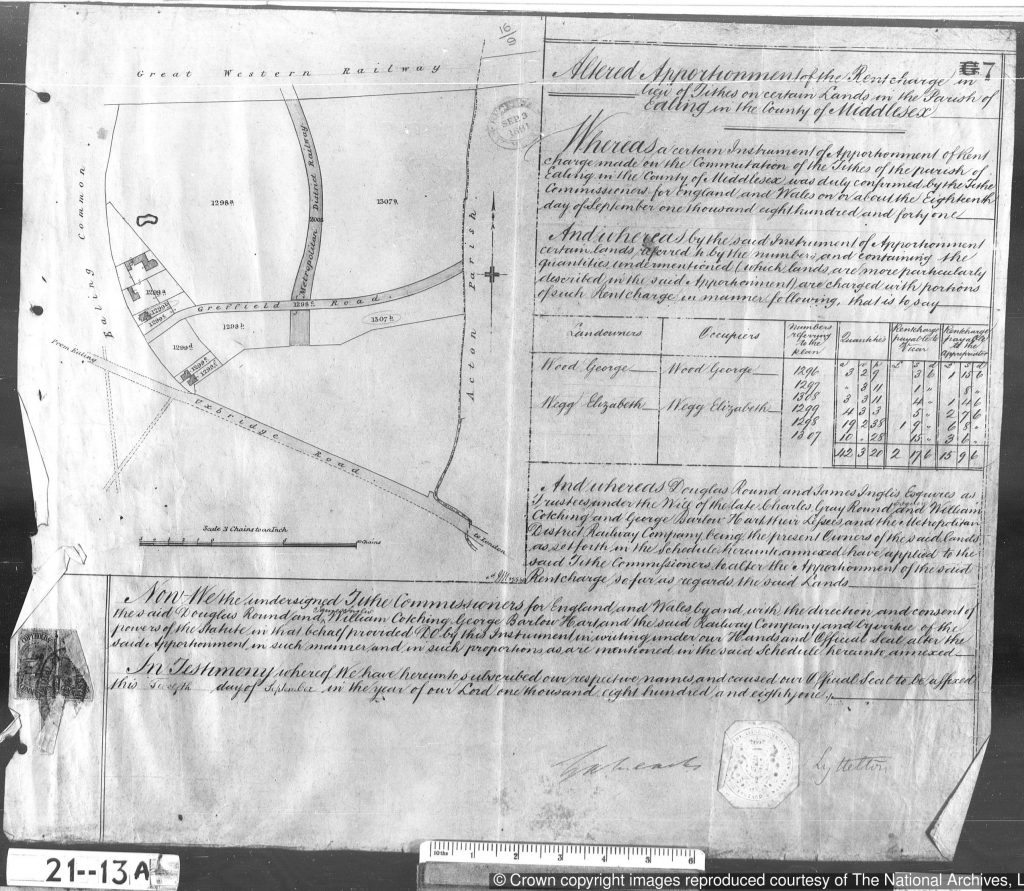 16/9
Great Western Railway
Ealing Common
Metropolitan District Railway
1298a
1307b
Acton Parish
Greffield Road
1298b
1299a
1307b
1299d
From Ealing
Uxbridge Road
to London
Scale 3 Chains to an Inch
10 Chains
SEP 3
1881
G7
Altered Apportionment of the Rentcharge in
lieu of Tithes on certain Lands in the Parish of
Ealing in the County of Middlesex
Whereas a certain Instrument of Apportionment of Rent
charge made on the Commutation of the Tithes of the parish of
Ealing in the County of Middlesex was duly confirmed by the Tithe
Commissioners for England and Wales on or about the Eighteenth
day of September one thousand eight hundred and forty one
And whereas by the said Instrument of Apportionment
certain lands referred to by the numbers and containing the
quantities undermentioned (which lands are more particularly
described in the said Apportionment) are charged with portions
of such Rentcharge in manner following, that is to say
Landowners Occupiers Numbers referring to the plan Quantities Rentcharge payable to Vicar Rentcharge payable to the Appropriator
Wood George Wood George 1296 3 2 9 " 3 6 1 15 6
1297 " 3 11 " 1 " " 8 "
1308 3 3 11 " 4 " 1 4 6
Wegg Elizabeth Wegg Elizabeth 1299 4 3 3 " 5 " 2 7 6
1298 19 2 38 1 9 " 6 8 "
1307 10 " 28 " 15 " 3 6 "
42 3 20 2 17 6 15 9 6
And whereas Douglas Round and James Inglis Esquires as
Trustees under the Will of the late Charles Gray Round and William
Cotching and George Barlow Hart their Lessees and the Metropolitan
District Railway Company being the present Owners of the said lands
as set forth in the Schedule hereunto annexed have applied to the
said Tithe Commissioners to alter the Apportionment of the said
Rentcharge so far as regards the said Lands
Now We the undersigned Tithe Commissioners for England and Wales by and with the direction and consent of
the said Douglas Round and James Inglis William Cotching George Barlow Hart and the said Railway Company and by virtue of the
powers of the Statute in that behalf provided Do by this Instrument in writing under our Hands and Official Seal alter the
said Apportionment in such manner and in such proportions as are mentioned in the said Schedule hereunto annexed
In Testimony whereof We have hereunto subscribed our respective names and caused our Official Seal to be affixed
this day of September in the year of our Lord one thousand eight hundred and eighty one
Lyttelton
21--13A
10ths 1 2 3 4 5 6
© Crown copyright images reproduced courtesy of The National Archives, L